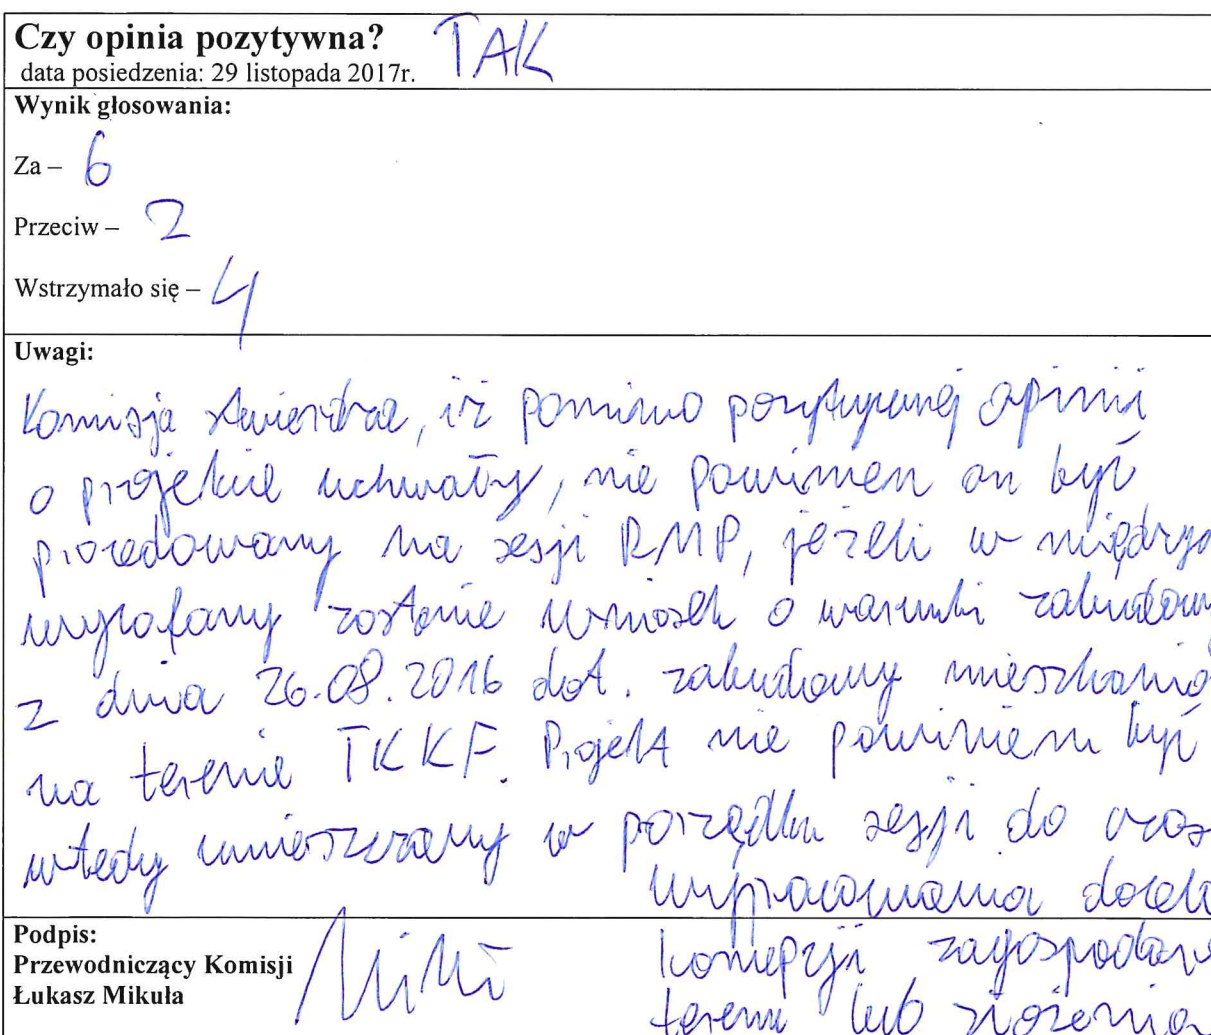 Czy opinia pozytywna? TAK
data posiedzenia: 29 listopada 2017r.
Wynik głosowania:
Za – 6
Przeciw – 2
Wstrzymało się – 4
Uwagi:
Komisja stwierdza, iż pomimo pozytywnej opinii
o projekcie uchwały, nie powinien on być
procedowany na sesji RMP, jeżeli w międzycz
wycofany zostanie wniosek o warunki zabudowy
z dnia 26.08.2016 dot. zabudowy mieszkanio
na terenie TKKF. Projekt nie powinien być
wtedy umieszczany w porządku sesji do czas
wypracowania docel
Podpis:
Przewodniczący Komisji
Łukasz Mikuła
koncepcji zagospodarow
terenu lub złożenia